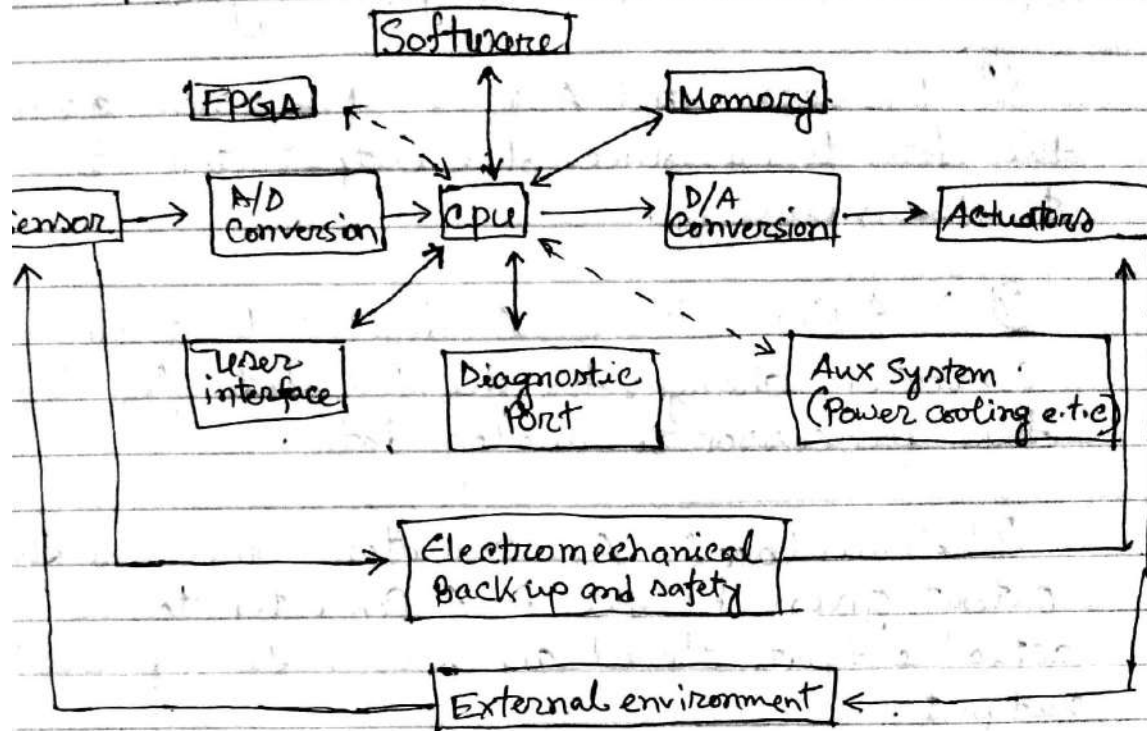 Software
FPGA
Memory
Sensor
A/D
Conversion
CPU
D/A
Conversion
Actuators
User
interface
Diagnostic
Port
Aux System
(Power cooling e.t.c)
Electromechanical
Back up and safety
External environment